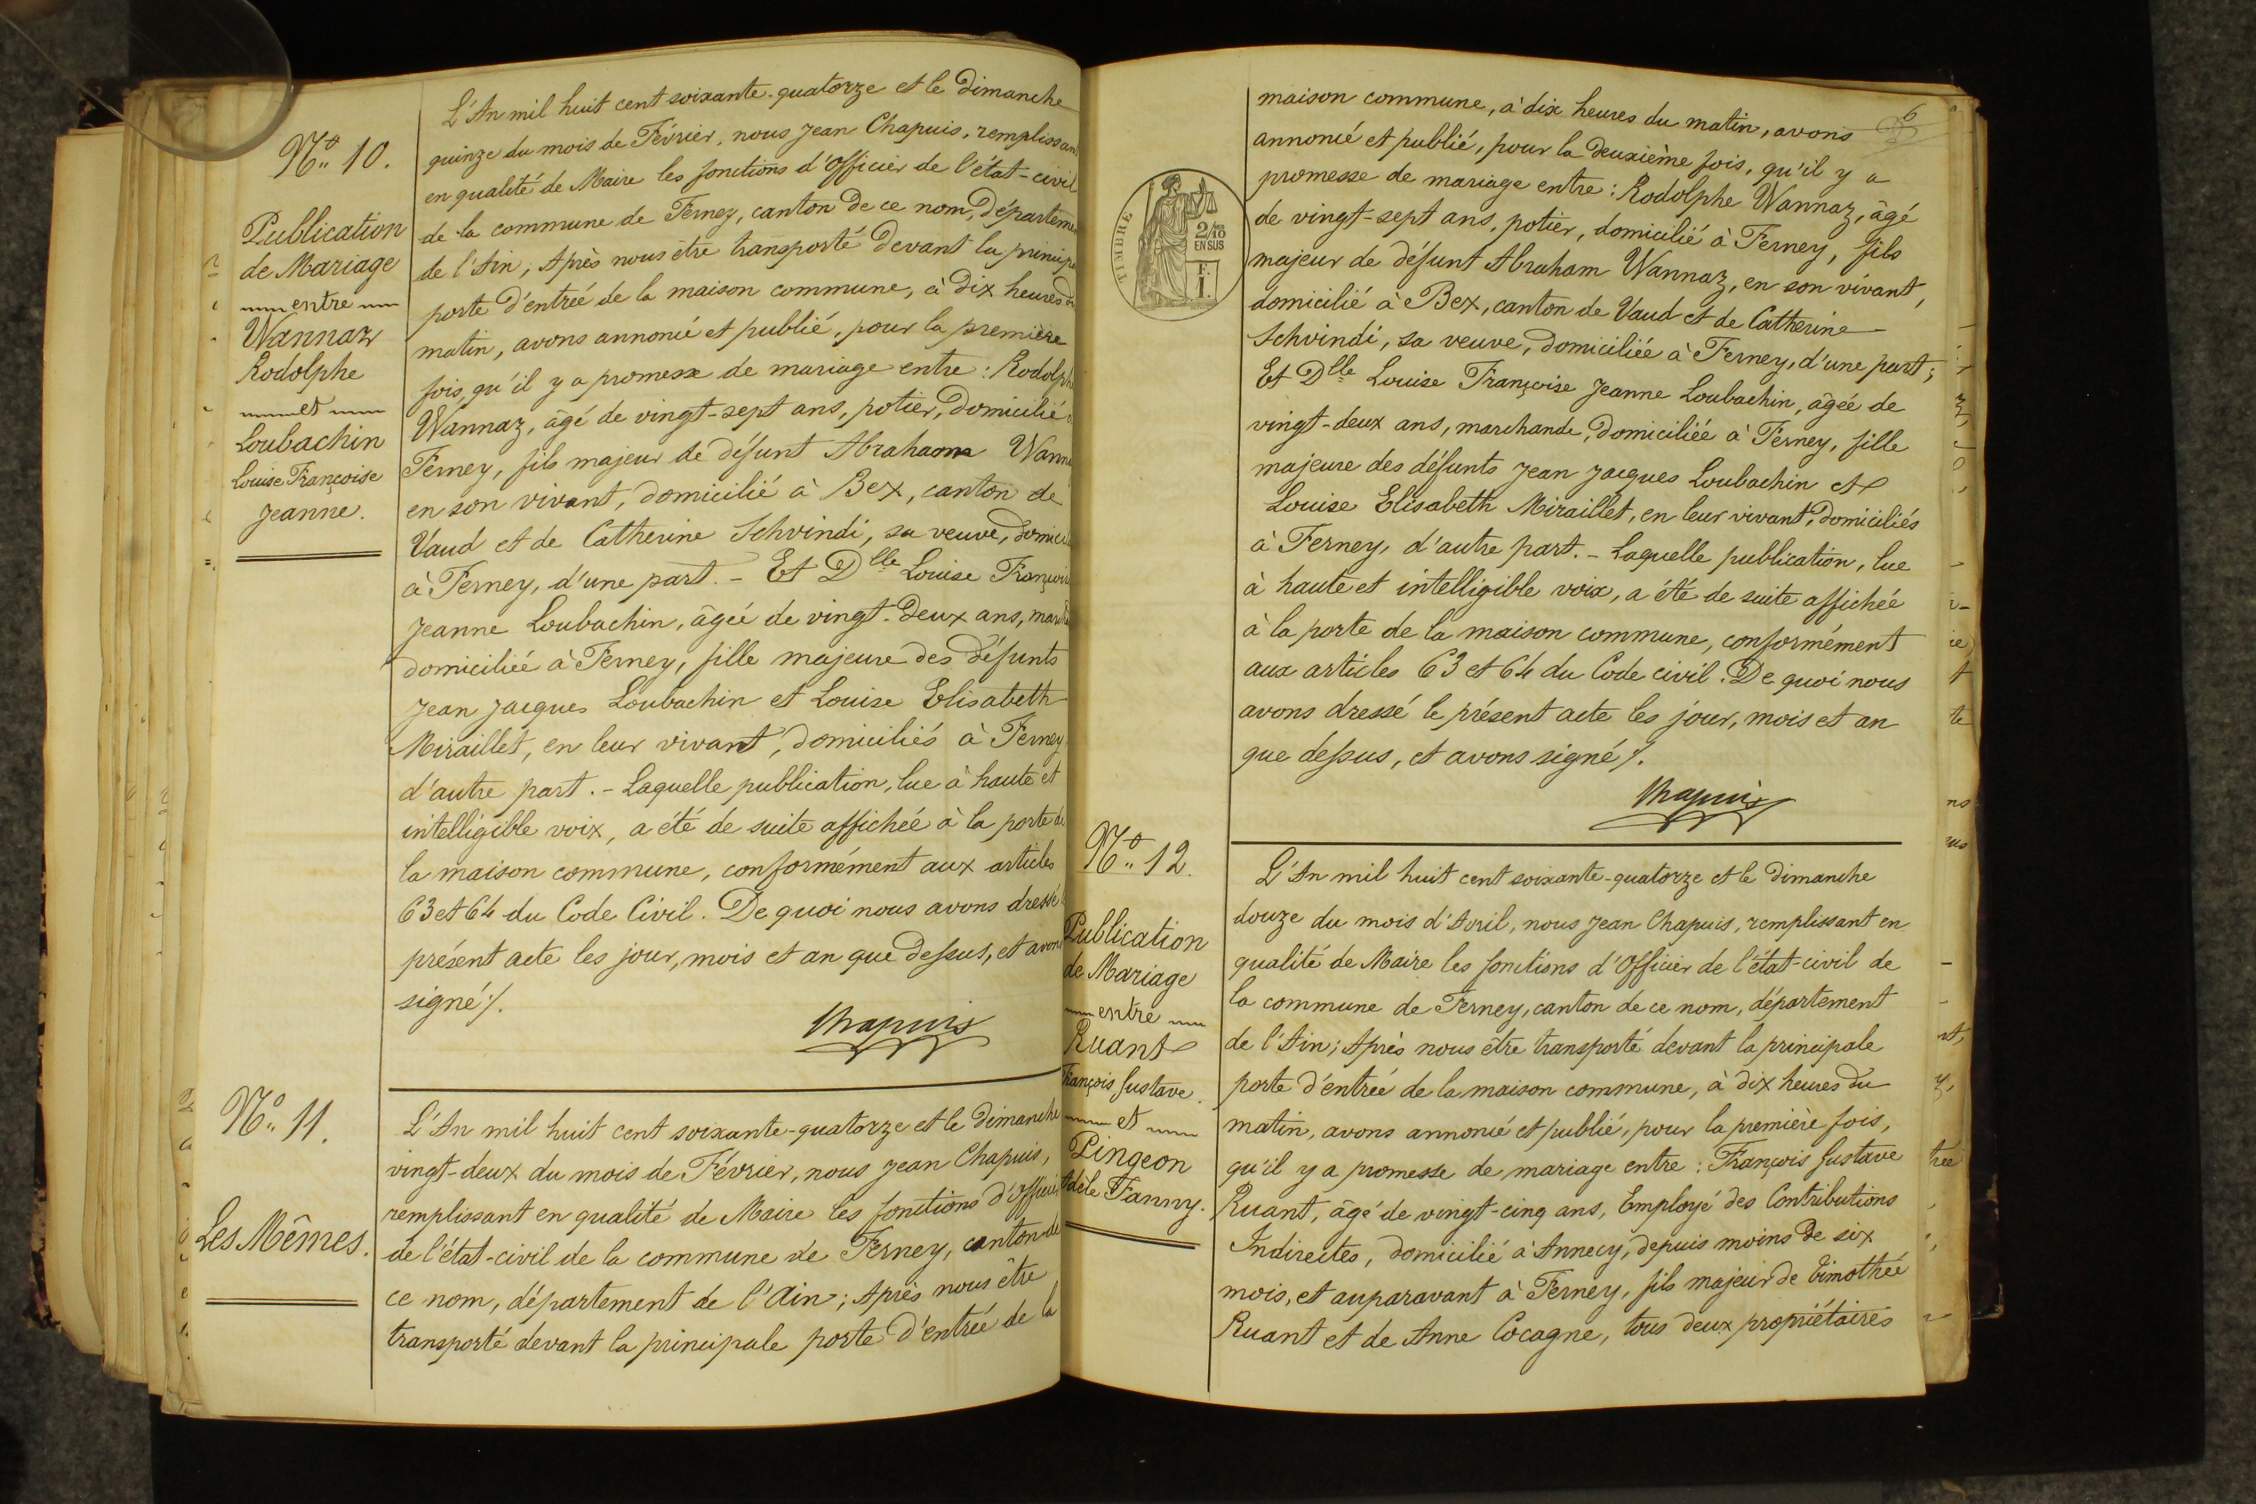 Nº 10.
Publication
de Mariage
entre
Wannaz
Rodolphe
et
Loubachin
Louise Françoise
Jeanne.
L'An mil huit cent soixante-quatorze et le Dimanche
quinze du mois de Février, nous Jean Chapuis, remplissan
en qualité de Maire les fonctions d'Officier de l'état-civil
de la commune de Ferney, canton de ce nom, départeme
de l'Ain; Après nous être transporté devant la princip
porte d'entrée de la maison commune, à dix heures du
matin, avons annoncé et publié, pour la première
fois, qu'il y a promesse de mariage entre : Rodolph
Wannaz, âgé de vingt-sept ans, potier, domicilié à
Ferney, fils majeur de défunt Abraham Wann
en son vivant, domicilié à Bex, canton de
Vaud et de Catherine Schvindi, sa veuve, domici
à Ferney, d'une part. - Et Dlle Louise Françoi
Jeanne Loubachin, âgée de vingt-deux ans, march
domiciliée à Ferney, fille majeure des défunts
Jean Jacques Loubachin et Louise Elisabeth
Miraillet, en leur vivant, domiciliés à Ferney
d'autre part. - Laquelle publication, lue à haute et
intelligible voix, a été de suite affichée à la porte de
la maison commune, conformément aux articles
63 et 64 du Code Civil. De quoi nous avons dressé l
présent acte les jour, mois et an que dessus, et avon
signé /.
Chapuis
Nº 11.
Les Mêmes.
L'An mil huit cent soixante-quatorze et le Dimanche
vingt-deux du mois de Février, nous Jean Chapuis,
remplissant en qualité de Maire les fonctions d'Officier
de l'état-civil de la commune de Ferney, canton de
ce nom, département de l'Ain; Après nous être
transporté devant la principale porte d'entrée de la
6
TIMBRE
2/10
EN SUS
F.
1.
maison commune, à dix heures du matin, avons
annoncé et publié, pour la deuxième fois, qu'il y a
promesse de mariage entre : Rodolphe Wannaz, âgé
de vingt-sept ans, potier, domicilié à Ferney, fils
majeur de défunt Abraham Wannaz, en son vivant,
domicilié à Bex, canton de Vaud et de Catherine
Schvindi, sa veuve, domiciliée à Ferney, d'une part;
Et Dlle Louise Françoise Jeanne Loubachin, âgée de
vingt-deux ans, marchande, domiciliée à Ferney, fille
majeure des défunts Jean Jacques Loubachin et
Louise Elisabeth Miraillet, en leur vivant, domiciliés
à Ferney, d'autre part. - Laquelle publication, lue
à haute et intelligible voix, a été de suite affichée
à la porte de la maison commune, conformément
aux articles 63 et 64 du Code civil. De quoi nous
avons dressé le présent acte les jour, mois et an
que dessus, et avons signé /.
Chapuis
Nº 12.
Publication
de Mariage
entre
Ruant
François Gustave.
et
Pingeon
Adèle Fanny.
L'An mil huit cent soixante-quatorze et le dimanche
douze du mois d'Avril, nous Jean Chapuis, remplissant en
qualité de Maire les fonctions d'Officier de l'état-civil de
la commune de Ferney, canton de ce nom, département
de l'Ain; Après nous être transporté devant la principale
porte d'entrée de la maison commune, à dix heures du
matin, avons annoncé et publié, pour la première fois,
qu'il y a promesse de mariage entre : François Gustave
Ruant, âgé de vingt-cinq ans, Employé des Contributions
Indirectes, domicilié à Annecy, depuis moins de six
mois, et auparavant à Ferney, fils majeur de Timothée
Ruant et de Anne Cocagne, tous deux propriétaires